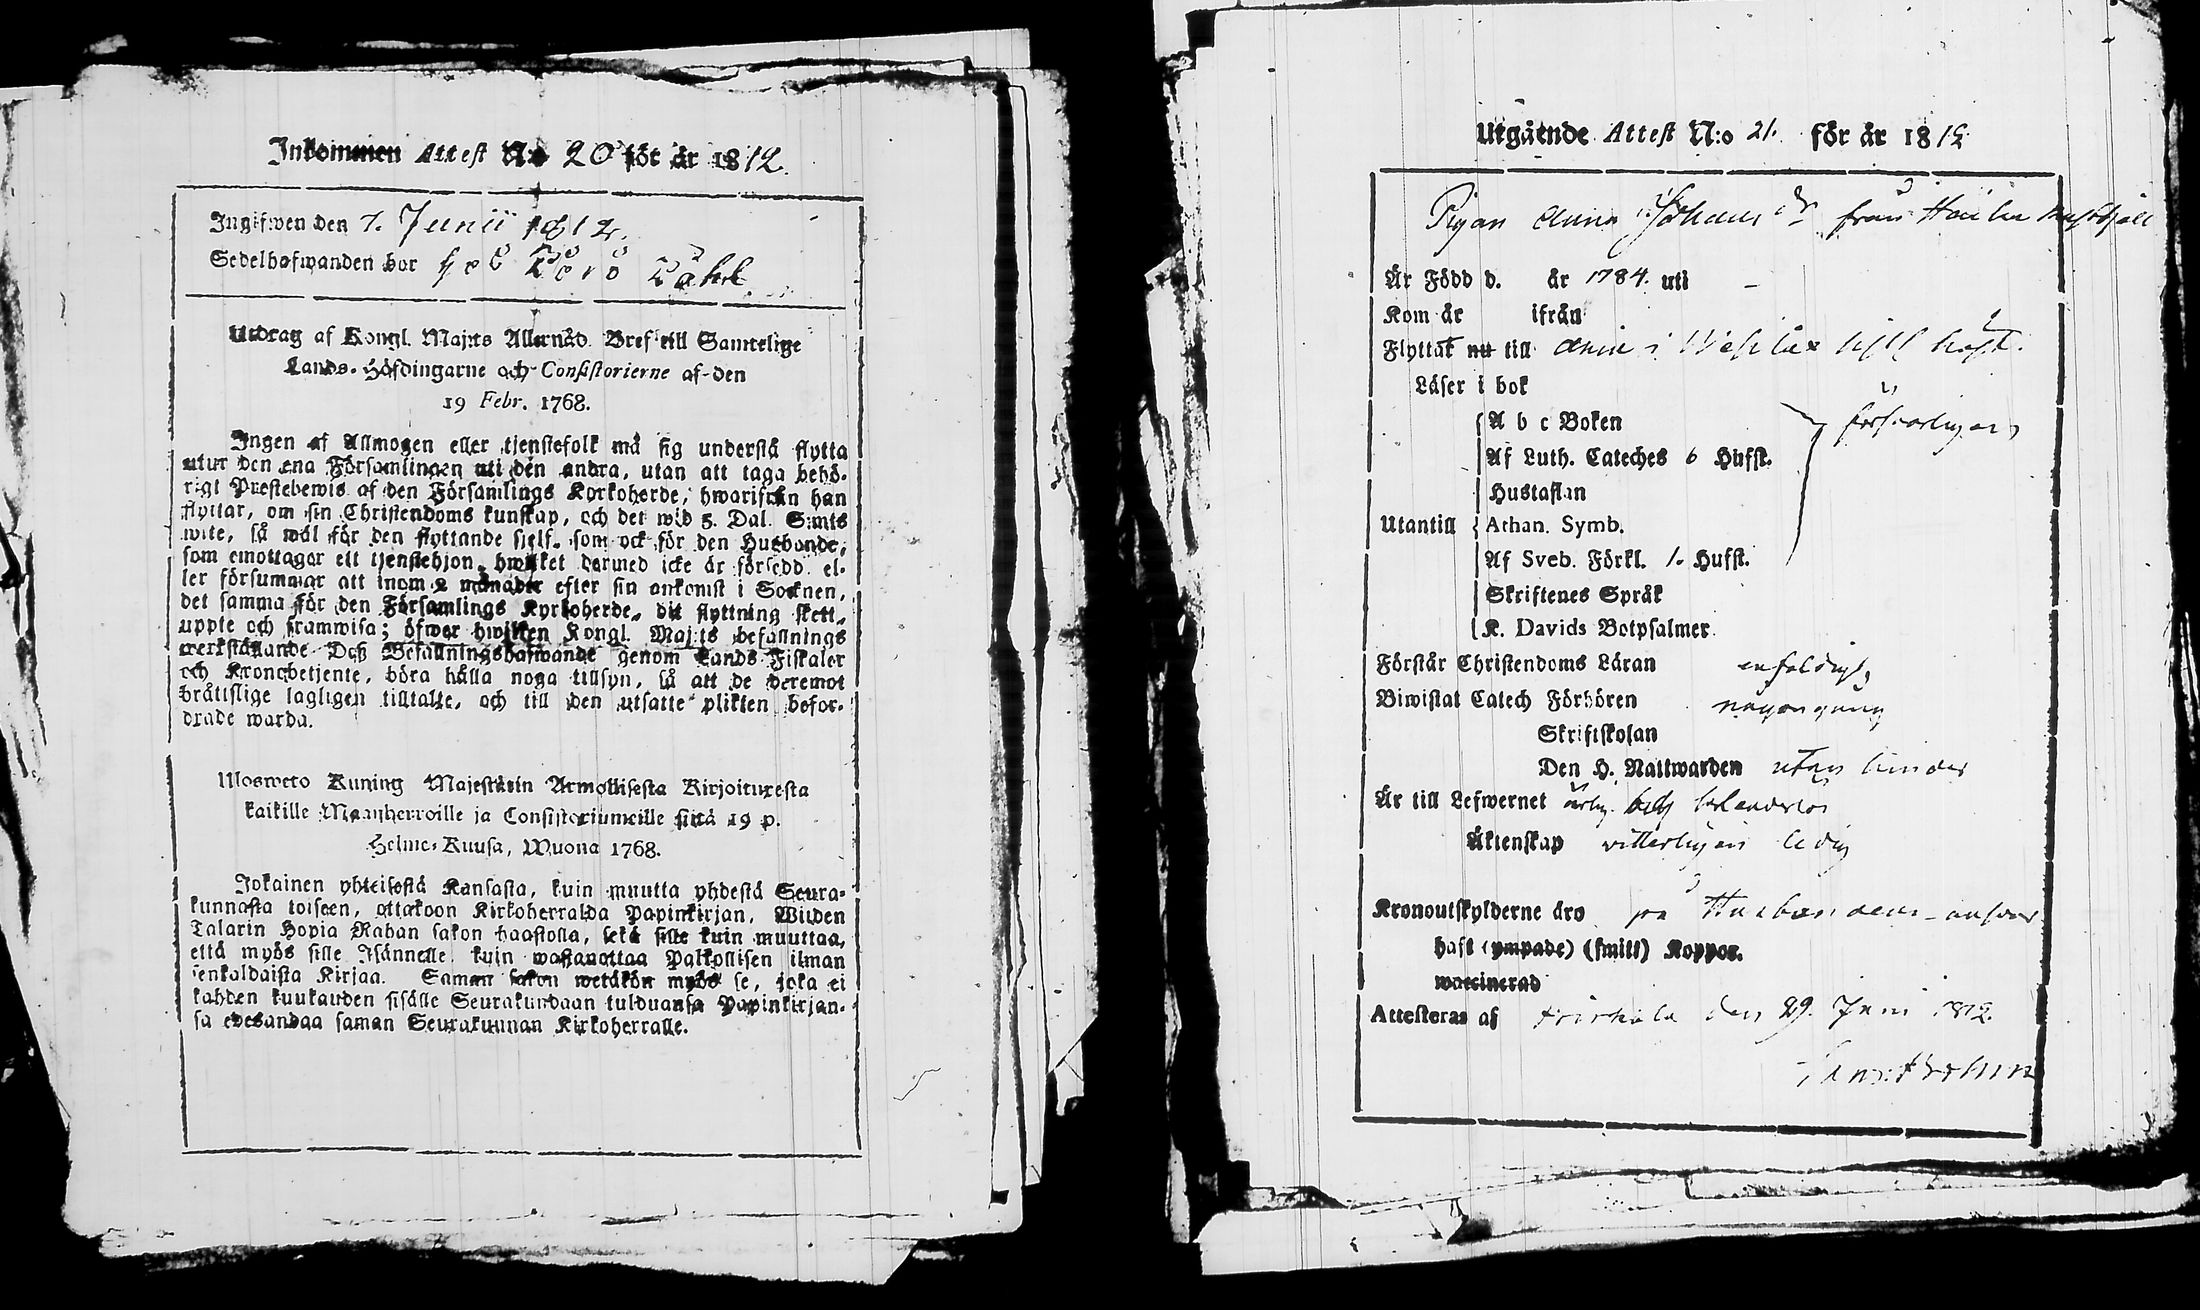 Inkommen Attest N:o 20 för år 1812.
Ingifwen den 7. Junii 1812.
Sedelhafwanden bor
Utdrag af Kongl. Maj:ts Allernåd. Bref till Samtelige
Lands-Höfdingarne och Consistorierne af den
19 Febr. 1768.
Ingen af Allmogen eller tjenstefolk må sig understå flytta
utur den ena Församlingen uti den andra, utan att taga behö-
rigt Prestebewis af den Församlings Kyrkoherde, hwarifrån han
flyttar, om sin Christendoms kunskap, och det wid 5. Dal. S:mts
wite, så wäl för den flyttande sjelf, som ock för den Husbonde,
som emottager ett tjenstehjon, hwilket dermed icke är försedd, el-
ler försummar att inom 2 månader efter sin ankomst i Socknen,
det samma för den Församlings Kyrkoherde, dit flyttning skett,
uppte och framwisa; öfwer hwilken Kongl. Maj:ts befallnings
werkställande Deß Befallningshafwande genom Lands Fiskaler
och Kronobetjente, böra hålla noga tillsyn, så att de deremot
bråttslige lagligen tilltalte, och till den utsatte plikten befor-
drade warda.
Ulosweto Kuning Majestätin Armollisesta Kirjoituxesta
kaikille Maanherroille ja Consistoriumeille siitä 19 p.
Helme-Kuusa, Wuona 1768.
Jokainen yhteisestä Kansasta, kuin muutta yhdestä Seura-
kunnasta toiseen, ottakoon Kirkoherralda Papinkirjan, Wiiden
Talarin Hopia Rahan sakon haastolla, sekä sille kuin muuttaa,
että myös sille Isännelle kuin wastanottaa Palkollisen ilman
senkaldaista Kirjaa. Saman sakon wetäkön myös se, joka ei
kahden kuukauden sisälle Seurakundaan tulduansa Papinkirjan-
sa edesandaa saman Seurakunnan Kirkoherralle.
Utgående Attest N:o 21. för år 1812
Pigan Anna Johans dr från
Är Född d. år 1784. uti –
Kom år ifrån
Flyttat nu till
Läser i bok
A b c Boken försvarligen
Af Luth. Cateches 6 Hufst.
Hustaflan
Utantill Athan. Symb.
Af Sveb. Förkl. 1. Hufst.
Skriftenes Språk
K. Davids Botpsalmer.
Förstår Christendoms Läran enfaldigt,
Biwistat Catech Förhören någon gång
Skriftskolan
Den H. Nattwarden utan hinder
Är till Lefwernet ärlig och
Äktenskap witterligen ledig
Kronoutskylderne äro på Husbondens answar
haft (ympade) (smitt) Koppor.
waccinerad
Attesteras af den 29. Juni 1812.